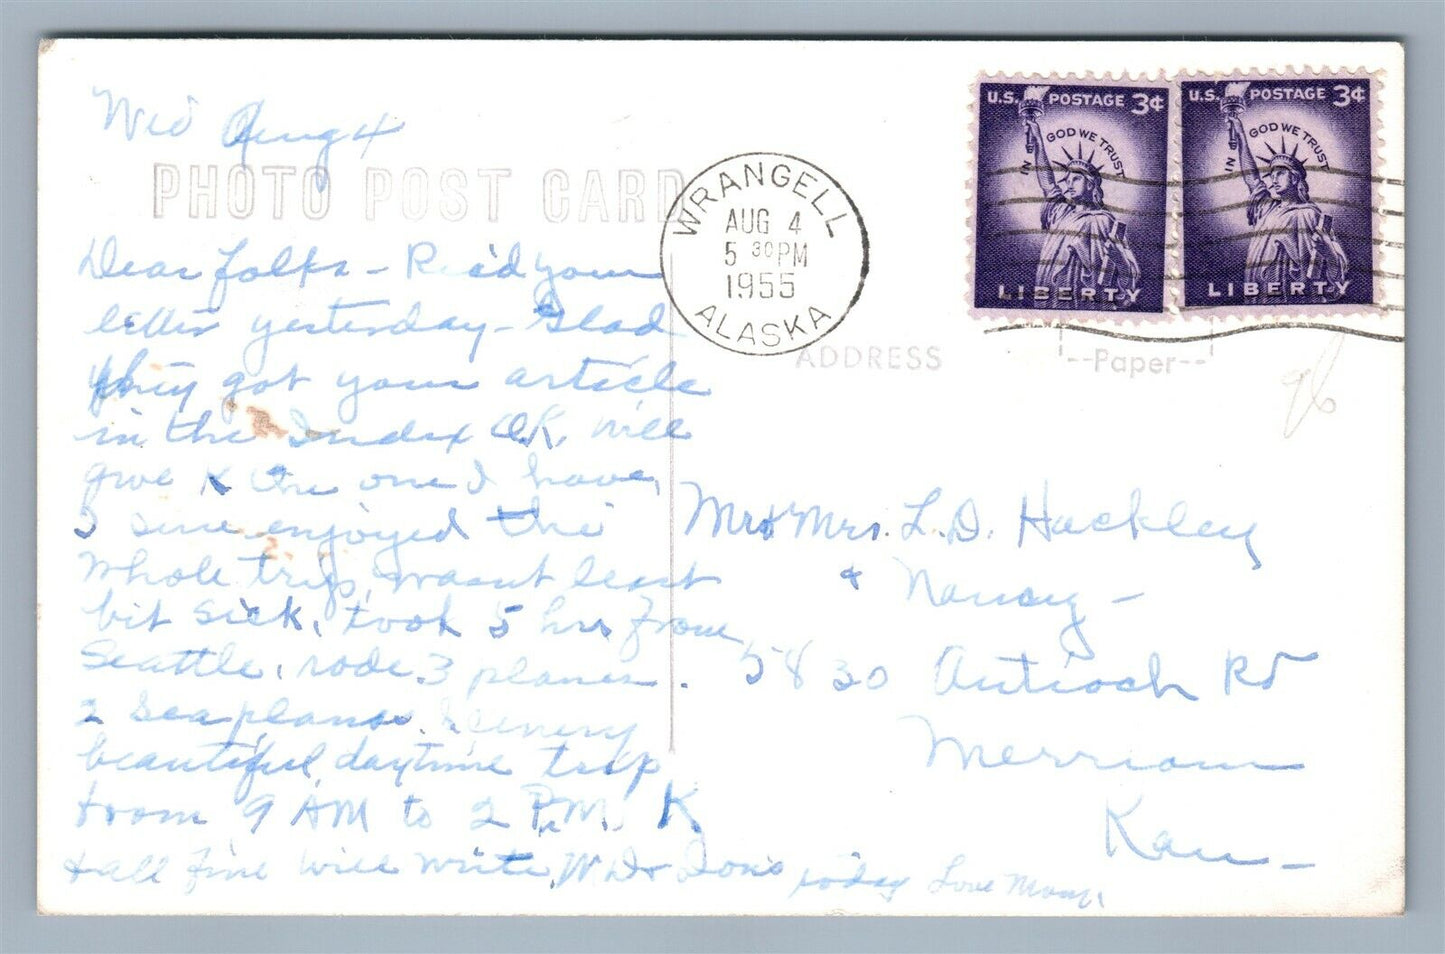 Wed Aug 4
PHOTO POST CARD
Dear folks - Rec'd your
letter yesterday - Glad
they got your article
in the Index O.K. will
give K the one I have,
I sure enjoyed the
whole trip, wasnt least
bit sick, took 5 hrs from
Seattle, rode 3 planes.
2 sea planes. Scenery
beautiful, daytime trip
from 9 AM to 2 P.M. K
& all fine will write
today Love Mom.
WRANGELL
AUG 4
5 30 PM
1955
ALASKA
U.S. POSTAGE 3¢
IN GOD WE TRUST
LIBERTY
U.S. POSTAGE 3¢
IN GOD WE TRUST
LIBERTY
ADDRESS
--Paper--
Mr & Mrs. L.D. Hackley
& Nancy -
5830 Antioch Rd
Merriam
Kan -